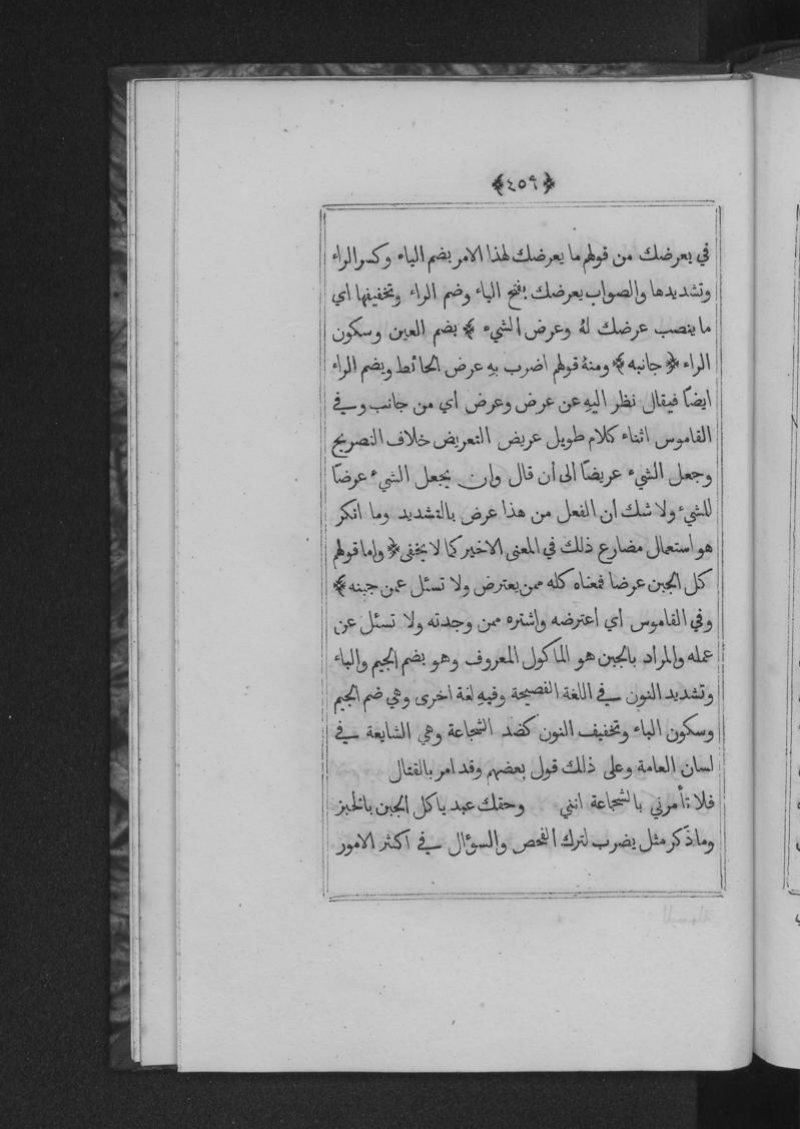 ﴿٤٥٩﴾
في يعرضك من قولهم ما يعرضك لهذا الامر بضم الياء وكسر الراء
وتشديدها والصواب يعرضك بفتح الياء وضم الراء وتخفيفها اي
ما ينصب عرضك لهُ وعرض الشيء ﴾ بضم العين وسكون
الراء ﴿ جانبه ﴾ ومنهُ قولهم اضرب بهِ عرض الحائط وبضم الراء
ايضًا فيقال نظر اليهِ عن عرض وعرض أي من جانب وفي
القاموس اثناء كلام طويل عريض التعريض خلاف التصريح
وجعل الشيء عريضًا الى أن قال وان يجعل الشيء عرضًا
للشيء ولا شك ان الفعل من هذا عرض بالتشديد وما انكر
هو استعمال مضارع ذلك في المعنى الاخير كما لا يخفى ﴿ واما قولهم
كل الجبن عرضا فمعناه كله ممن يعترض ولا تسئل عمن جبنه ﴾
وفي القاموس أي أعترضه واشتره ممن وجدته ولا تسئل عن
عمله والمراد بالجبن هو المأكول المعروف وهو بضم الجيم والباء
وتشديد النون في اللغة الفصيحة وفيهِ لغة اخرى وهي ضم الجيم
وسكون الباء وتخفيف النون كضد الشجاعة وهي الشايعة في
لسان العامة وعلى ذلك قول بعضهم وقد امر بالقتال
فلا تأمرني بالشجاعة انني وحقك عبد ياكل الجبن بالخبز
وما ذكر مثل يضرب لترك الفحص والسؤال في اكثر الامور